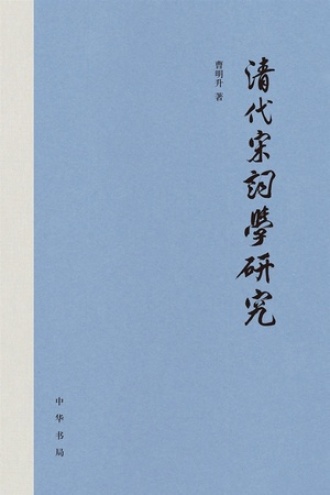 清代宋詞學研究
曹明升 著
中华书局